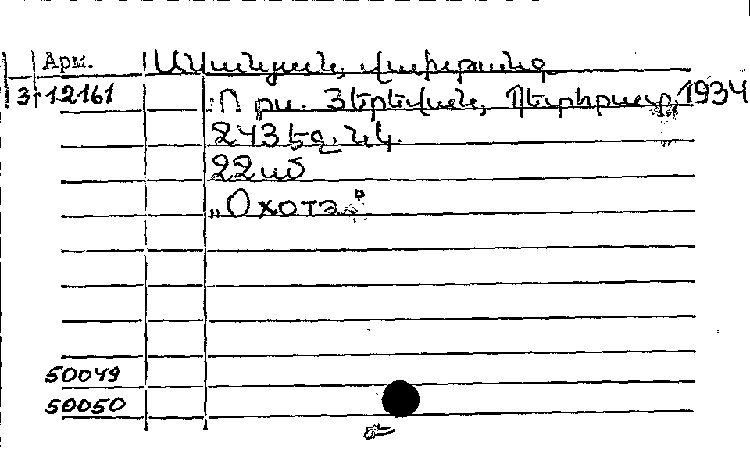 Арм. Անանյան, Վախթանգ
3-12161 Որս. Յերեվան, Պետհրատ, 1934
243 եջ. նկ.
22 սմ
„Охота"
50049
50050